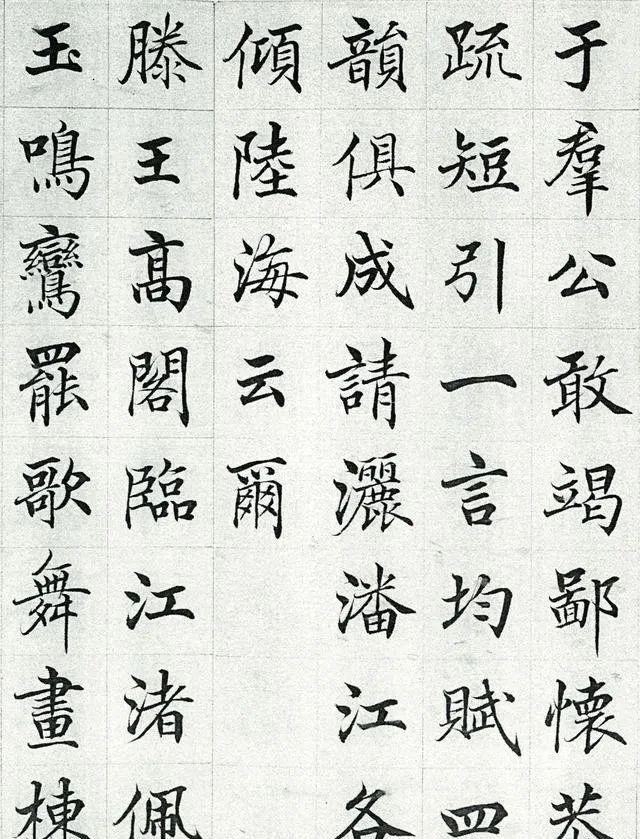 于羣公敢竭鄙懷恭
疏短引一言均賦四
韻俱成請灑潘江各
傾陸海云爾
滕王高閣臨江渚佩
玉鳴鸞罷歌舞畫棟